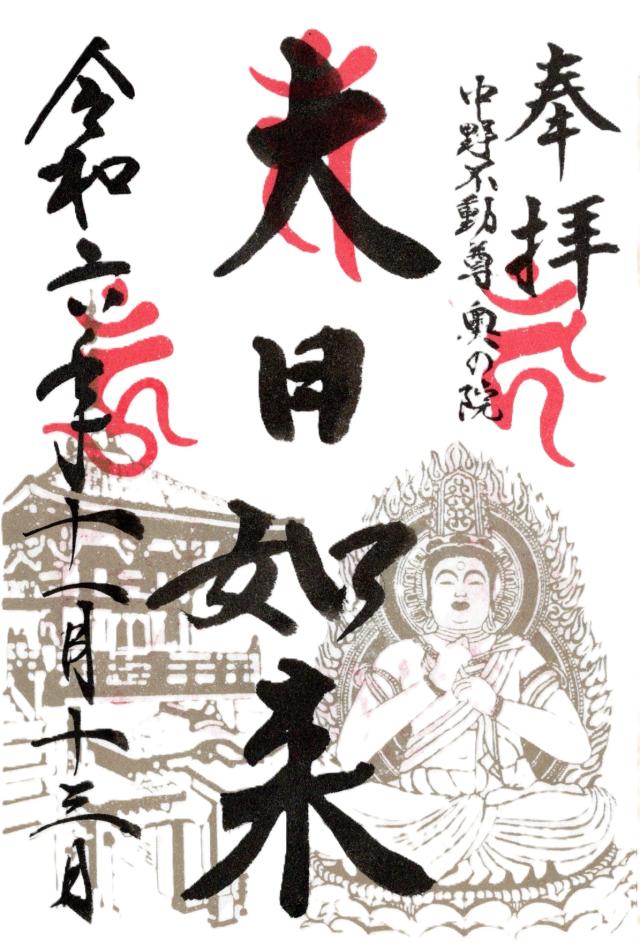 奉拝
中野不動尊 奥の院
大日如来
令和六年十一月十三日